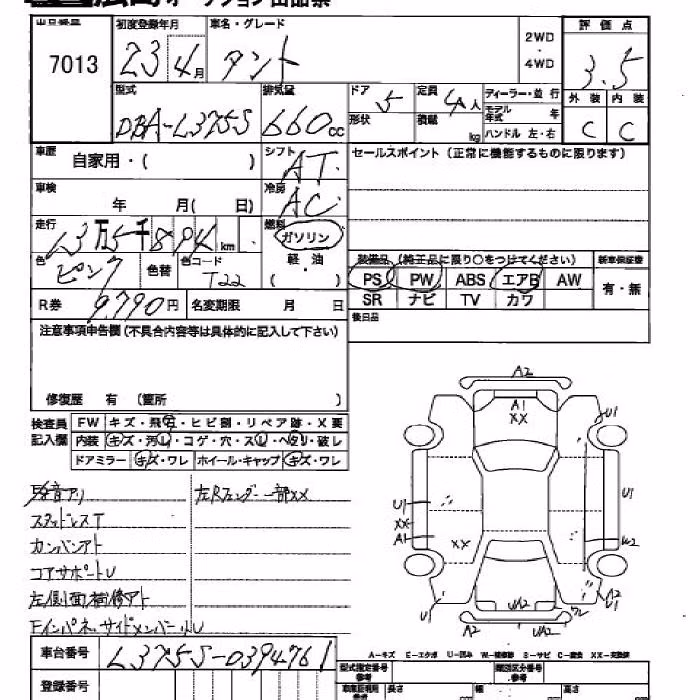 出品番号 初度登録年月 車名・グレード 2WD・4WD 評価点
7013 23 4月 タント 3.5
型式 排気量 ドア 5 定員 4人 ディーラー・並行 外装 内装
DBA-L375S 660cc 形状 積載 kg モデル年式 年 C C
ハンドル 左・右
車歴 自家用・( ) シフト AT セールスポイント(正常に機能するものに限ります)
車検 年 月( 日) 冷房 AC
走行 13万5千894km 燃料 ガソリン
色 ピンク 色替 色コード T22 軽・油 ( ) 装備品(純正品に限り○をつけてください) 新車保証書
PS PW ABS エアB AW 有・無
R券 9,790円 名変期限 月 日 SR ナビ TV カワ
後日品
注意事項申告欄(不具合内容等は具体的に記入して下さい)
修復歴 有 (箇所 )
検査員記入欄 FW キズ・飛石・ヒビ割・リペア跡・X要
内装 キズ・汚レ・コゲ・穴・スレ・ヘタリ・破レ
ドアミラー キズ・ワレ ホイール・キャップ キズ・ワレ
A2
A1
XX
U1
U1
U1
XX
A1
XX
W2
U1
A2
UA2
A2
U1
A2
UA2
異音アリ 左Rフェンダー一部XX
スタッドレスT
カンバンアト
コアサポートU
左側面補修アト
FインパネサイドメンバーU
A-キズ E-エクボ U-凹み W-補修跡 S-サビ C-腐食 XX-交換済
車台番号 L375S-0394761 型式指定番号 参考 類別区分番号 参考
登録番号 参考 長さ 幅 高さ